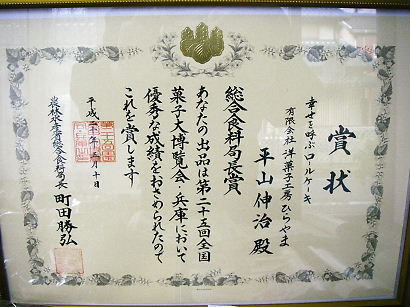 賞状
幸せを呼ぶロールケーキ
有限会社 洋菓子工房ひらやま
平山伸治 殿
総合食料局長賞
あなたの出品は第二十五回全国
菓子大博覧会・兵庫において
優秀な成績をおさめられたので
これを賞します
平成二十年五月十日
農林水産省総合食料局長
町田勝弘